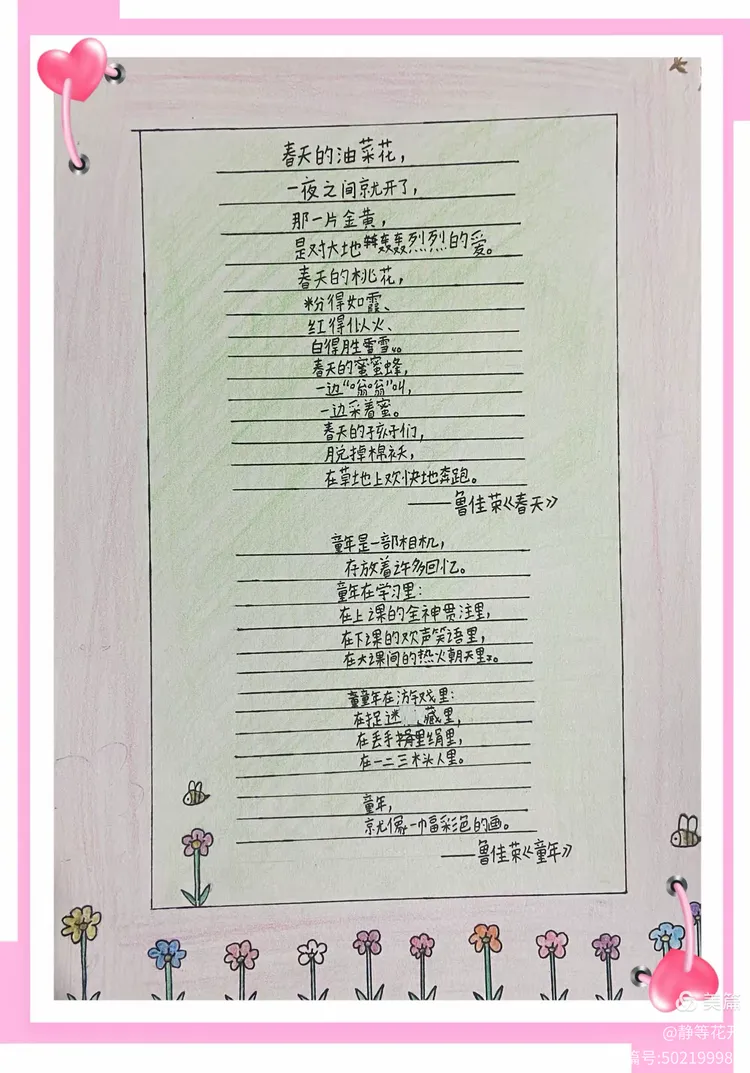 春天的油菜花，
一夜之间就开了，
那一片金黄，
是对大地轰轰烈烈的爱。
春天的桃花，
粉得如霞、
红得似火、
白得胜雪。
春天的蜜蜜蜂，
一边“嗡嗡”叫，
一边采着蜜。
春天的孩子们，
脱掉棉袄，
在草地上欢快地奔跑。
——鲁佳荣《春天》
童年是一部相机，
存放着许多回忆。
童年在学习里：
在上课的全神贯注里，
在下课的欢声笑语里，
在大课间的热火朝天里。
童年在游戏里：
在捉迷藏里，
在丢手绢里，
在一二三木头人里。
童年，
就像一幅彩色的画。
——鲁佳荣《童年》
美篇
@静等花开
篇号:50219998